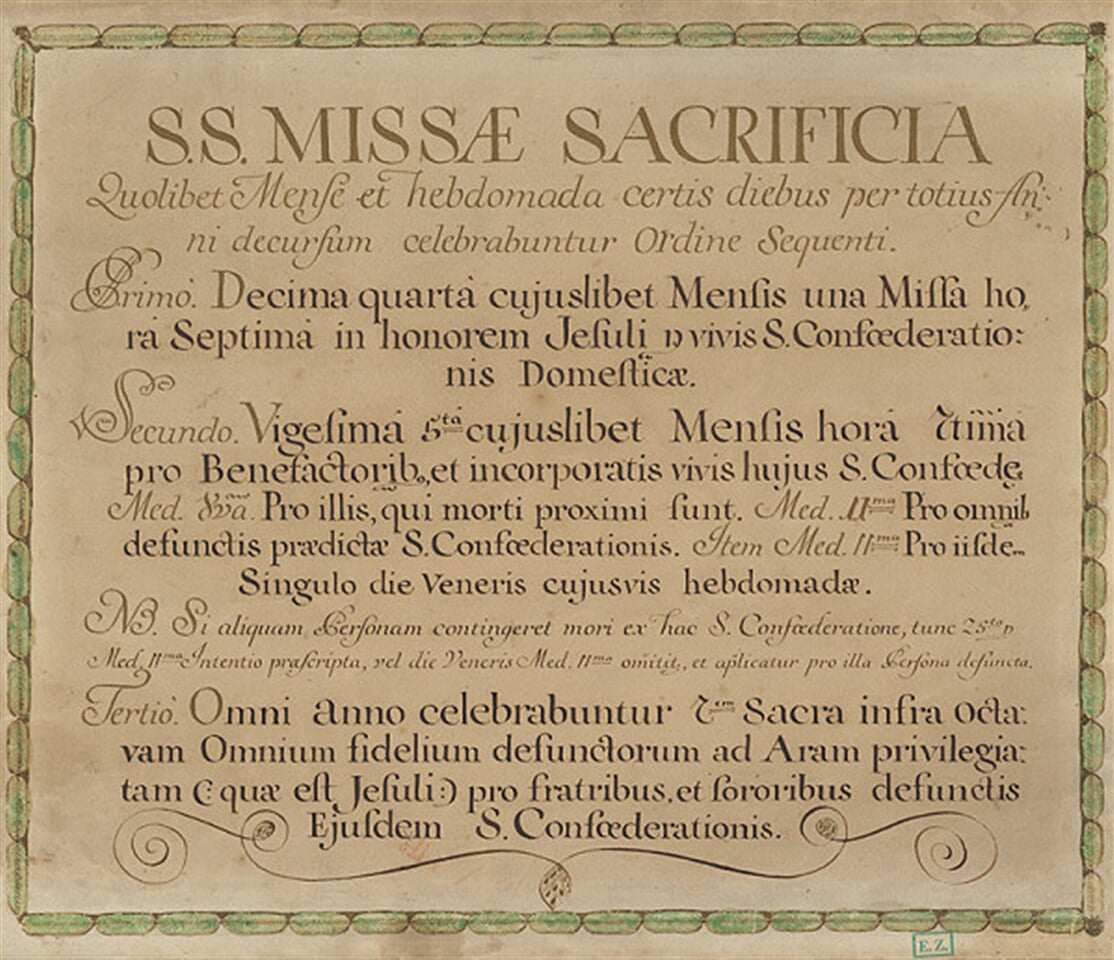 S.S. MISSÆ SACRIFICIA
Quolibet Menſe et hebdomada certis diebus per totius An:
ni decurſum celebrabuntur Ordine Sequenti.
Primò. Decima quartâ cujuslibet Menſis una Miſſa ho,
râ Septimâ in honorem Jeſuli p vivis S. Confœderatio:
nis Domeſticæ.
Secundo. Vigeſimâ 5tâ cujuslibet Menſis horâ
pro Benefactorib, et incorporatis vivis hujus S. Confœde,
Med. Pro illis, qui morti proximi ſunt. Med. 11ma Pro omnib
defunctis prædictæ S. Confœderationis. Item Med. 11ma Pro iiſde
Singulo die Veneris cujusvis hebdomadæ.
NB. Si aliquam Perſonam contingeret mori ex hac S. Confœderatione, tunc 25ta p
Med. 11ma Intentio præſcripta, vel die Veneris Med. 11ma omitit, et aplicatur pro illa Perſona defuncta.
Tertiò. Omni Anno celebrabuntur Sacra infra Octa:
vam Omnium fidelium defunctorum ad Aram privilegia:
tam (: quæ eſt Jeſuli :) pro fratribus, et ſororibus defunctis
Ejuſdem S. Confœderationis.
E.Z.